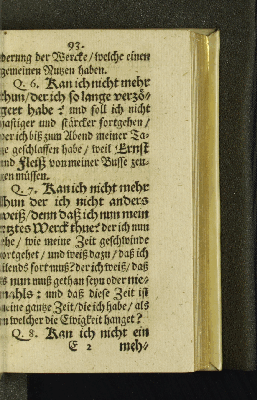 93.
derung der Wercke/welche einen
gemeinen Nutzen haben.
Q. 6. Kan ich nicht mehr
thun/der ich so lange verzö-
gert habe? und soll ich nicht
hastiger und stärcker fortgehen/
der ich biß zum Abend meiner Ta-
ge geschlaffen habe/weil Ernst
und Fleiß von meiner Busse zeu-
gen müssen.
Q. 7. Kan ich nicht mehr
thun der ich nicht anders
weiß/denn daß ich nun mein
letztes Werck thue? der ich nun
sehe/wie meine Zeit geschwinde
fortgehet/und weiß dazu/daß ich
eilends fort muß? der ich weiß/daß
es nun muß gethan seyn oder nie-
mahls: und daß diese Zeit ist
meine gantze Zeit/die ich habe/als
an welcher die Ewigkeit hanget?
Q. 8. Kan ich nicht ein
E 2 meh-